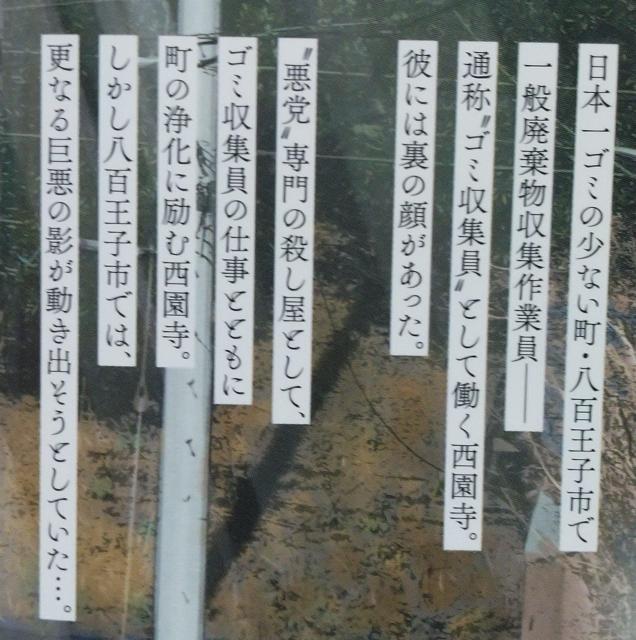 日本一ゴミの少ない町・八百王子市で
一般廃棄物収集作業員――
通称〝ゴミ収集員〟として働く西園寺。
彼には裏の顔があった。
〝悪党〟専門の殺し屋として、
ゴミ収集員の仕事とともに
町の浄化に励む西園寺。
しかし八百王子市では、
更なる巨悪の影が動き出そうとしていた…。